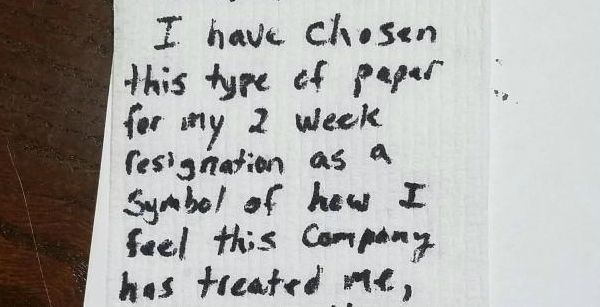 I have chosen
this type of paper
for my 2 week
resignation as a
Symbol of how I
feel this Company
has treated me,